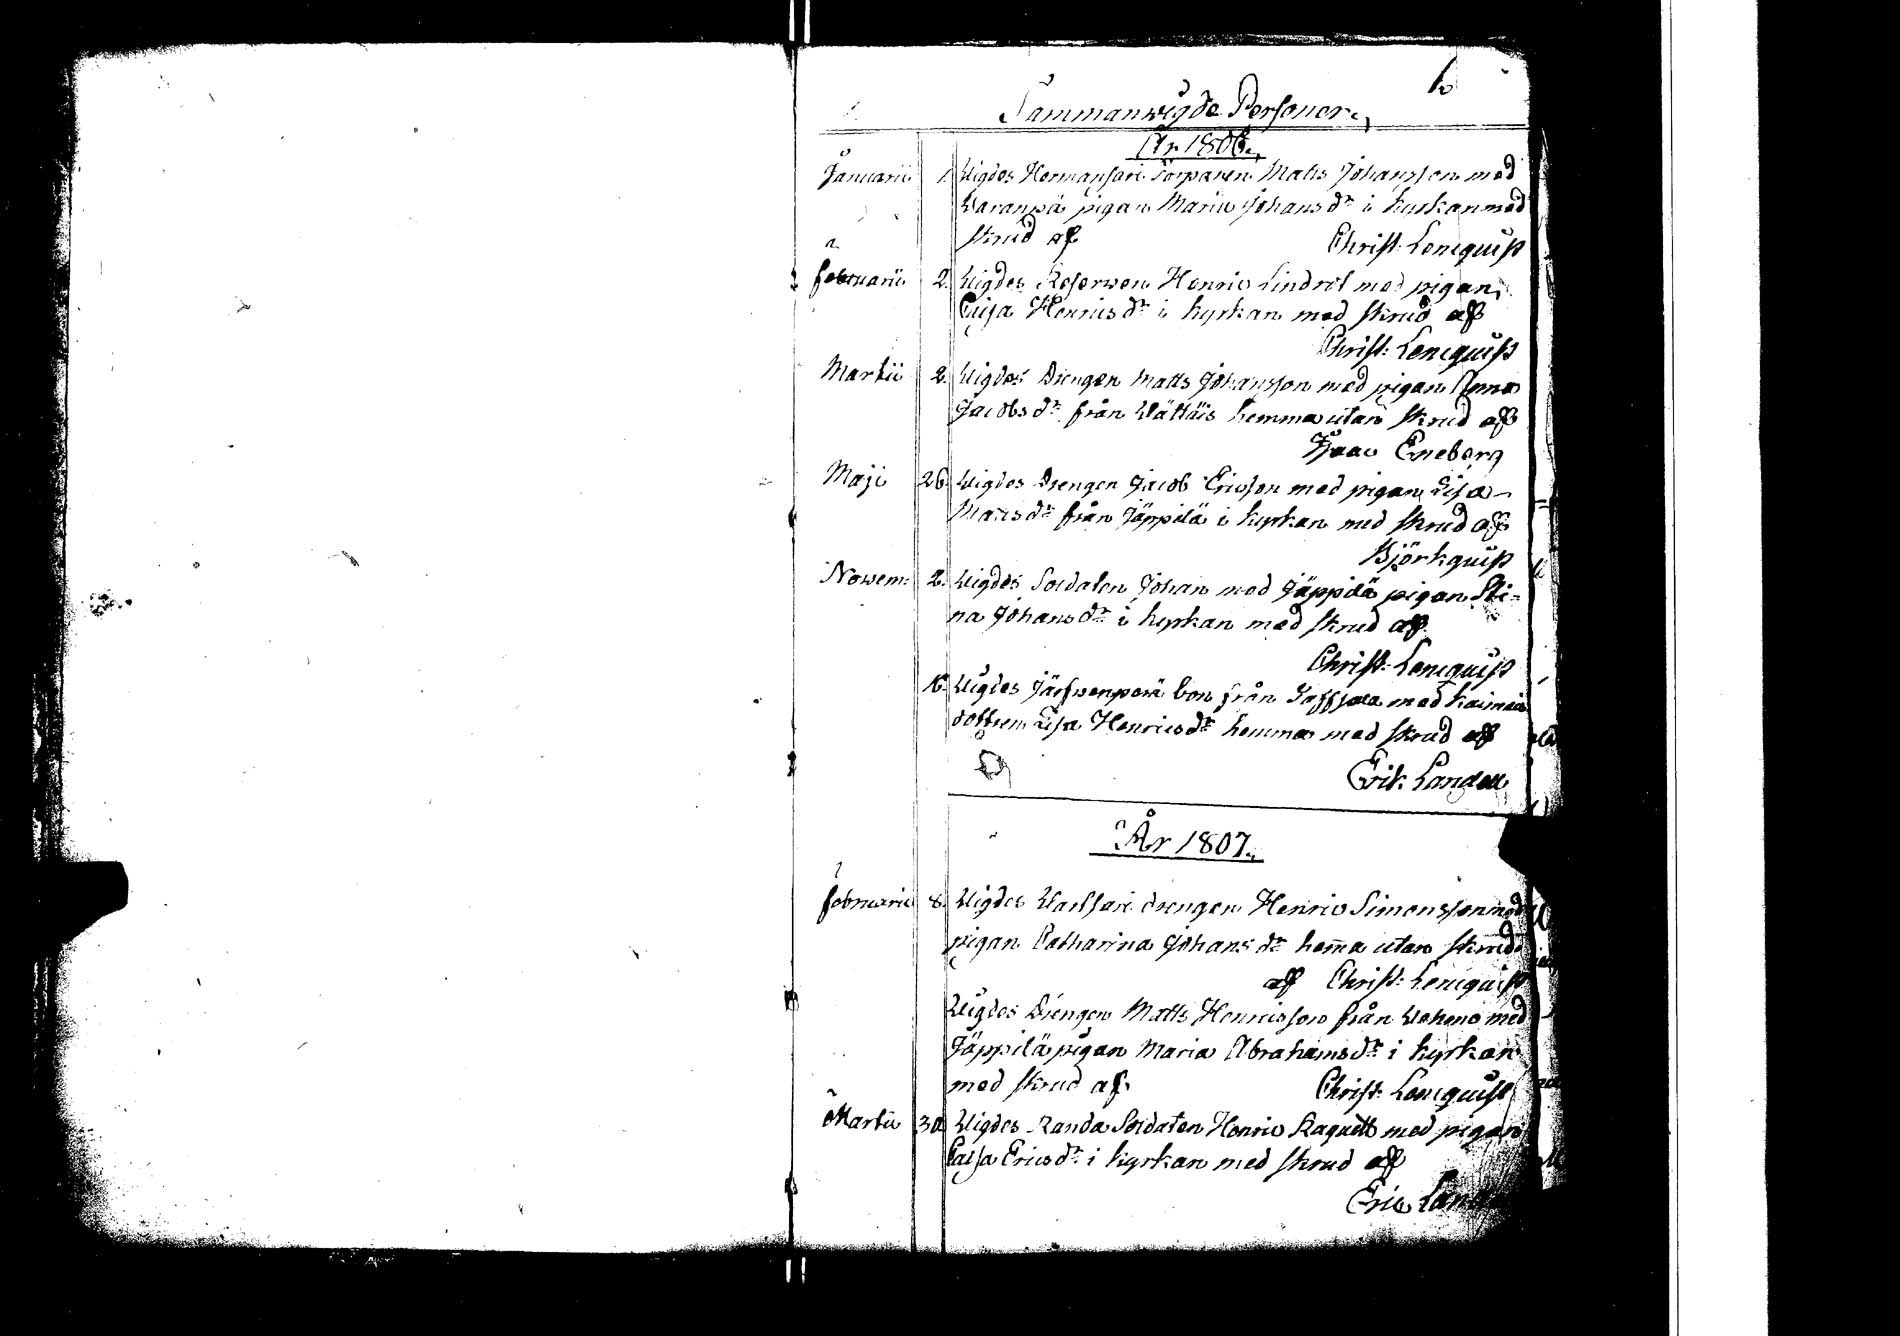 6
Sammanwigde Personer.
År 1806.
Januarii 1. Wigdes Hermansari Torparen Matts Johansson med
Waranpä pigan Maria Johans dr i kyrkan med
skrud af Christ. Lencquist
Februarii 2. Wigdes Reserwen Henric Lindrot med pigan
Caisa Henrics dr i kyrkan med skrud af
Christ: Lencquist
Martii 2. Wigdes Drengen Matts Johansson med pigan Anna
Jacobs dr från Wättäis hemma utan skrud af
Isaac Eneberg
Maji 26 Wigdes Drengen Jacob Ericsson med pigan Lisa
Matts dr från Jäppilä i kyrkan med skrud af
Björkquist
Novem: 2. Wigdes Soldaten Johan med Jäppilä pigan Sti-
na Johans dr i kyrkan med skrud af
Christ. Lencquist
16. Wigdes Järfwenperä bon från med
dottren Lisa Henrics dr hemma med skrud af
Erik Landell
År 1807.
Februarii 8. Wigdes drengen Henric Simonsson med
pigan Catharina Johans dr hema utan skrud
af Christ: Lencquist
Wigdes Drengen Matts Henricsson från med
Jäppilä pigan Maria Abrahams dr i kyrkan
med skrud af Christ. Lencquist
Martii 30 Wigdes Randa Soldaten Henric med pigan
Caisa Erics dr i kyrkan med skrud af
Eric